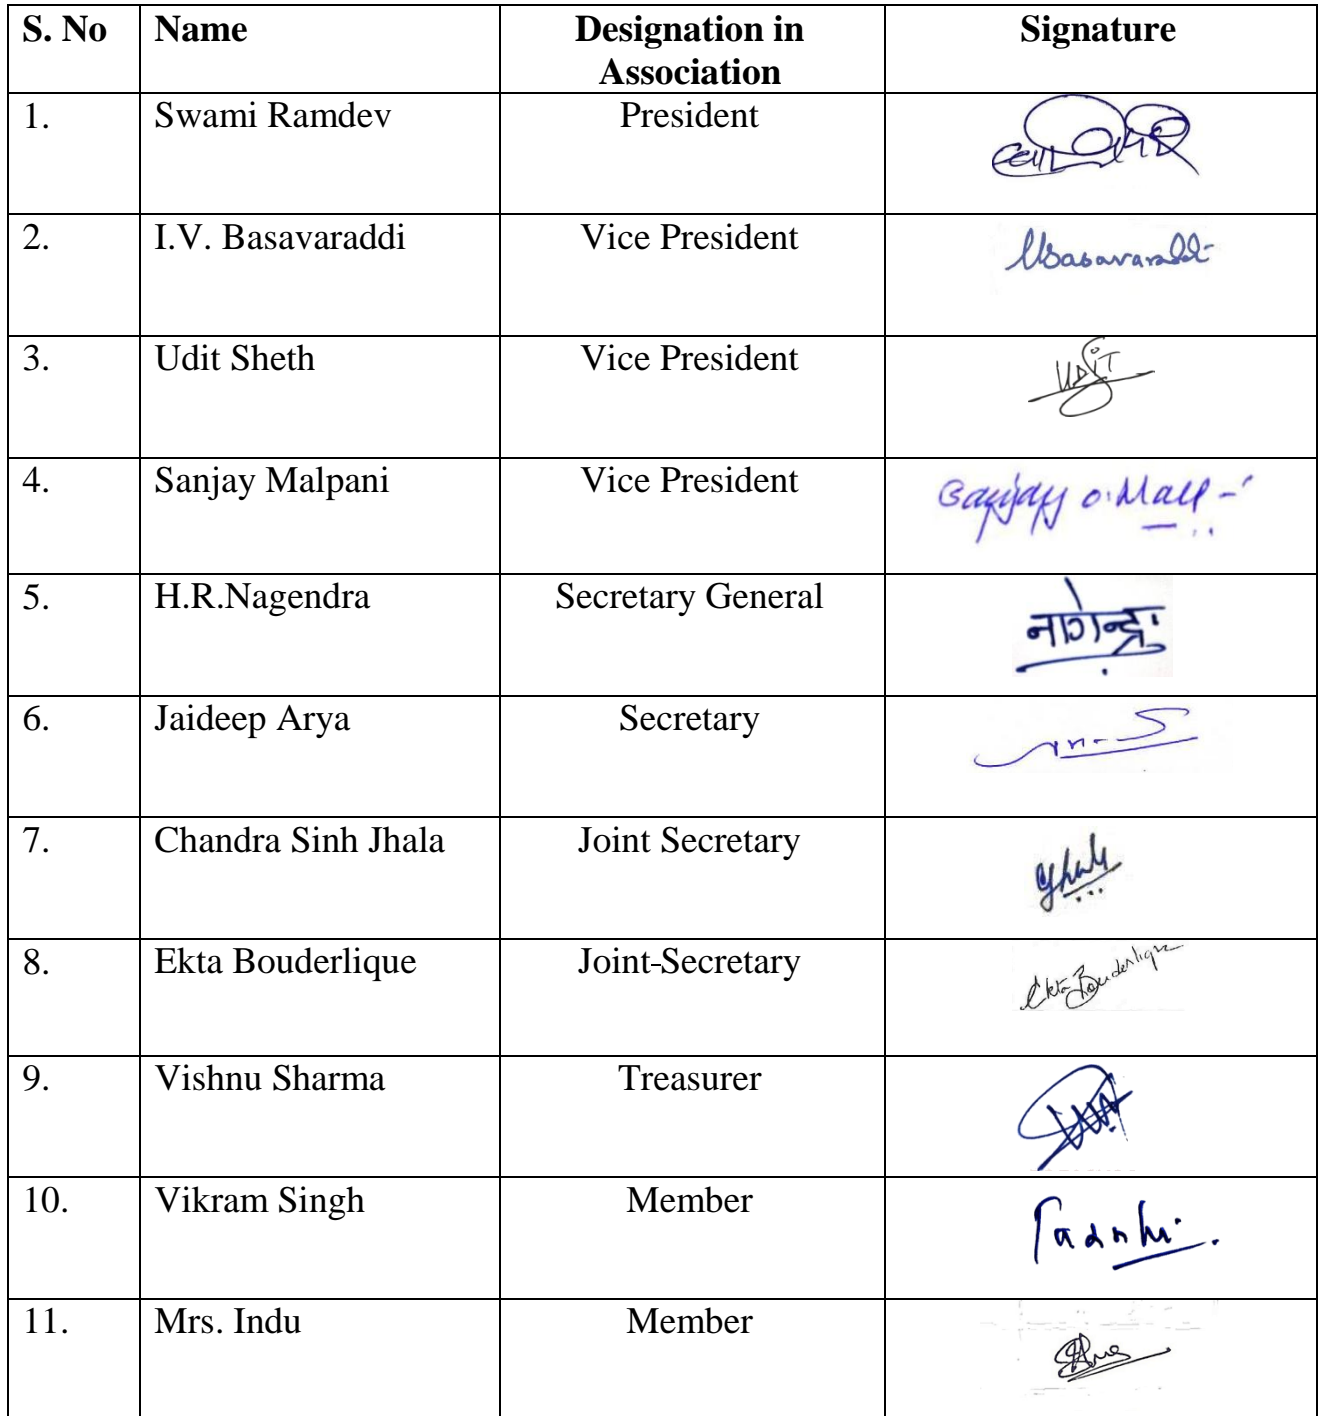 S. No Name Designation in Association Signature
1. Swami Ramdev President
2. I.V. Basavaraddi Vice President IVBasavaraddi
3. Udit Sheth Vice President UDIT
4. Sanjay Malpani Vice President
5. H.R.Nagendra Secretary General नागेन्द्र
6. Jaideep Arya Secretary
7. Chandra Sinh Jhala Joint Secretary
8. Ekta Bouderlique Joint-Secretary Ekta Bouderlique
9. Vishnu Sharma Treasurer
10. Vikram Singh Member
11. Mrs. Indu Member